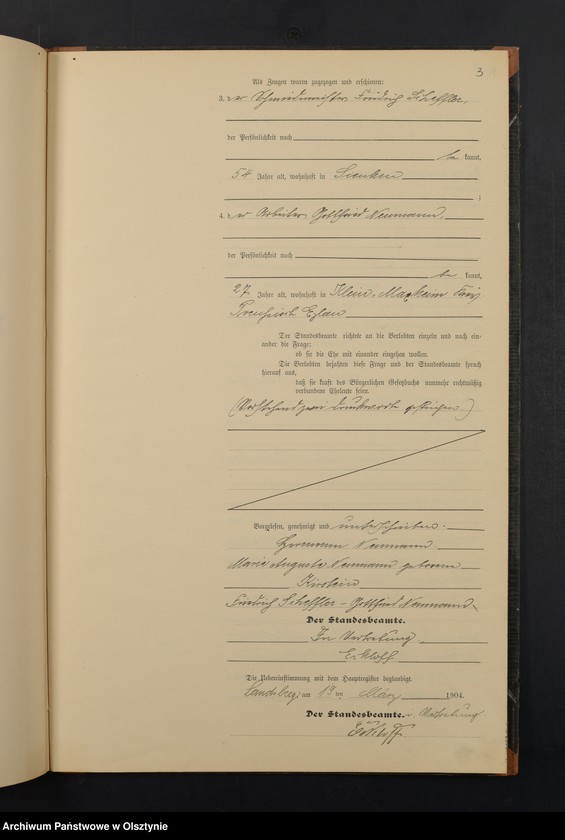 3
Als Zeugen waren zugezogen und erschienen:
3. der Schmiedemeister Friedrich Scheffler,
der Persönlichkeit nach
be kannt,
54 Jahre alt, wohnhaft in
;
4. der Arbeiter Gottfried Neumann,
der Persönlichkeit nach
be kannt,
27 Jahre alt, wohnhaft in Klein Kreis
Preußisch Eylau
Der Standesbeamte richtete an die Verlobten einzeln und nach ein-
ander die Frage:
ob sie die Ehe mit einander eingehen wollen.
Die Verlobten bejahten diese Frage und der Standesbeamte sprach
hierauf aus,
daß sie kraft des Bürgerlichen Gesetzbuchs nunmehr rechtmäßig
verbundene Eheleute seien.
(Vorstehend zwei Druckworte gestrichen)
Vorgelesen, genehmigt und unterschrieben.
Hermann Neumann
Marie Auguste Neumann geborene
Kirstein
Friedrich Scheffler – Gottfried Neumann
Der Standesbeamte.
In Vertretung
Eckloff
Die Uebereinstimmung mit dem Hauptregister beglaubigt.
Landsberg, am 19 ten März 1904.
Der Standesbeamte. in Vertretung
Eckloff
Archiwum Państwowe w Olsztynie